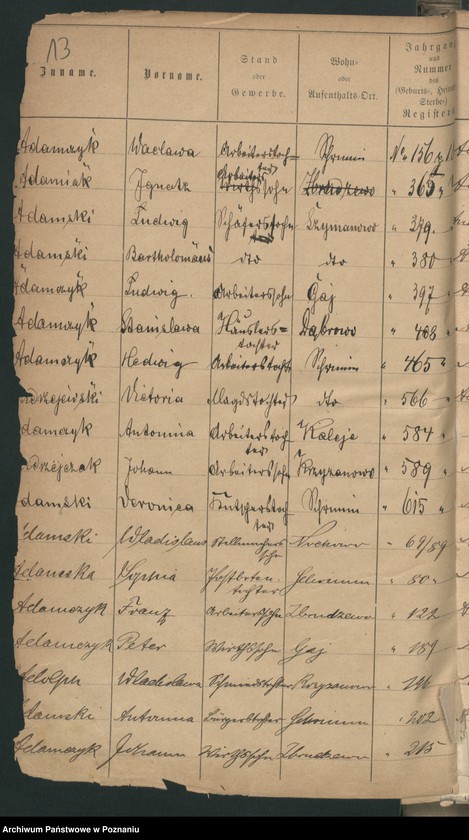 13
Zuname. Vorname. Stand oder Gewerbe. Wohn- oder Aufenthalts-Ort. Jahrgang und Nummer des (Geburts-, Heirats-, Sterbe-) Registers
Adamczyk Waclawa Arbeiterstoch= Schrimm No 156
Adamiak Ignatz Arbeiterssohn " 365
Adamski Ludwig Schäferssohn Szymanowo " 379.
Adamski Bartholomäus dto dto " 380
Adamczyk Ludwig. Arbeiterssohn Gaj " 397
Adamczyk Stanislawa Häuslers= tochter Dąbrowo " 408
Adamczyk Hedwig Arbeiterstocht Schrimm " 465
Andrzejewski Victoria Magdstochter dto " 566
Adamczyk Antonina Arbeiterstoch ter Kaleje " 584
Andrzejczak Johann Arbeiterssohn Krzyzanowo " 589
Adamski Veronica Kutscherstoch ter Schrimm " 615
Adamski Wladislaus Stellmachers sohn Nochowo " 69/89
Adamska Sophia Postboten tochter Schrimm " 80
Adamczyk Franz Arbeiterssohn Zbrudzewo " 122
Adamczyk Peter Wirthssohn Gaj " 189
Adolph Wladislawa Schmiedstochter Krzyzanowo " 196
Adamski Antonina Bürgerstochter Schrimm " 202
Adamczyk Johann Wirthssohn Zbrudzewo " 215
Archiwum Państwowe w Poznaniu